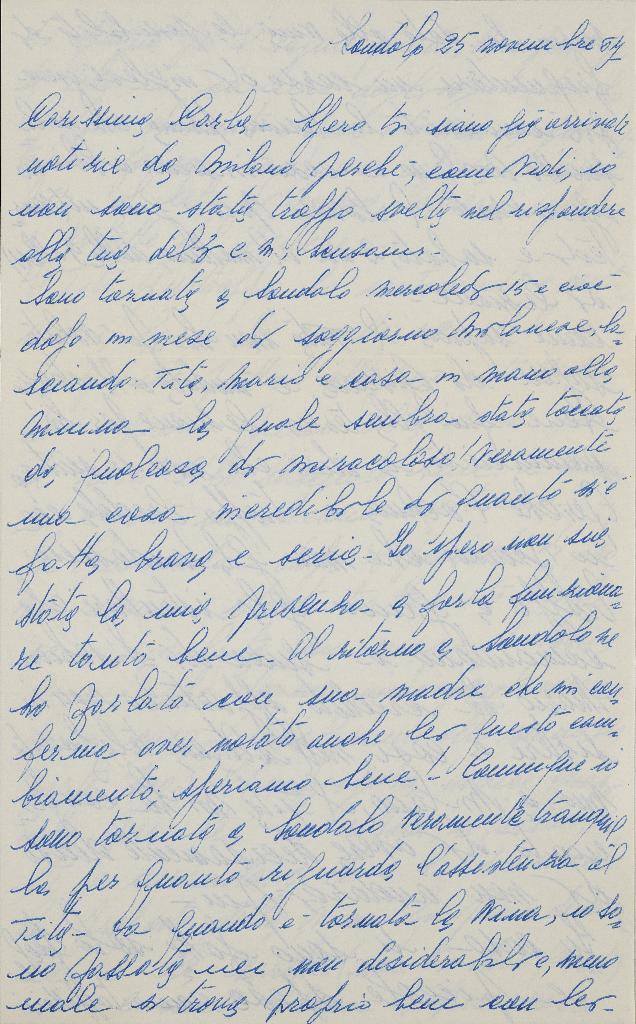 Sondalo 25 novembre 57
Carissima Carla - Spero ti siano già arrivate
notizie da Milano perchè, come vedi, io
non sono stata troppo svelta nel rispondere
alla tua del 3 c.m. Scusami -
Sono tornata a Sondalo mercoledì 15 e cioè
dopo un mese di soggiorno milanese, la-
sciando Tita, Mario e casa in mano alla
Minina la quale sembra stata toccata
da qualcosa di miracoloso! Veramente
una cosa incredibile di quanto si è
fatta brava e seria - Io spero non sia
stata la mia presenza a farla funziona-
re tanto bene - Al ritorno a Sondalo ne
ho parlato con sua madre che mi con-
ferma aver notato anche lei questo cam-
biamento; speriamo bene! - Comunque io
sono tornata a Sondalo veramente tranquil
la per quanto riguarda l'assistenza al
Tita - da quando è tornata la Nina, io so-
no passata nei non desiderabili e, meno
male si trova proprio bene con lei -